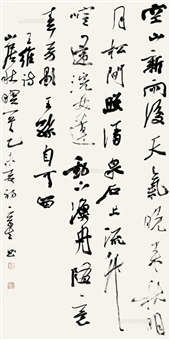 空山新雨後天氣晚來秋明
月松間照清泉石上流竹
喧歸浣女蓮動下漁舟隨意
春芳歇王孫自可留
王維詩
山居秋暝 乙未 初 書